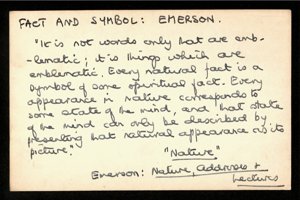 FACT AND SYMBOL: EMERSON.
"It is not words only that are emb-
-lematic; it is things which are
emblematic. Every natural fact is a
symbol of some spiritual fact. Every
appearance in nature corresponds to
some state of the mind, and that state
of the mind can only be described by
presenting that natural appearance as its
picture."
"Nature"
Emerson: Nature, Addresses +
Lectures